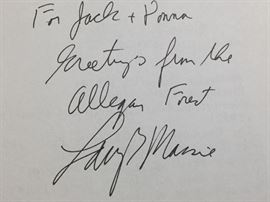 For Jack + Donna
Greetings from the
Allegan Forest
Larry B Massie